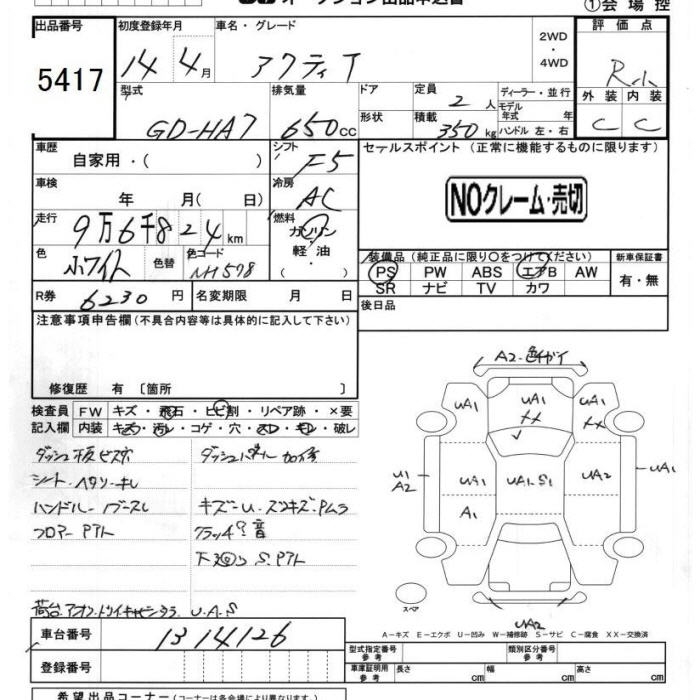 ①会場控
出品番号 初度登録年月 車名・グレード 評価点
5417
14年 4月 アクティT 2WD・4WD R小
外装 内装
C C
型式 排気量 ドア 定員 2人 ディーラー・並行
GD-HA7 650cc 形状 積載 350kg モデル年式 年
ハンドル 左・右
車歴 シフト セールスポイント (正常に機能するものに限ります)
自家用・( ) F5
車検 年 月(日) 冷房 AC
NOクレーム・売切
走行 9万6千824km 燃料 ガソリン・軽油・( )
色 ホワイト 色替 色コード NH578
装備品(純正品に限り○をつけてください) 新車保証書
PS PW ABS エアB AW 有・無
SR ナビ TV カワ
R券 6230円 名変期限 月 日 後日品
注意事項申告欄(不具合内容等は具体的に記入して下さい)
修復歴 有 〔箇所 〕
検査員記入欄 FW キズ・飛石・ヒビ割・リペア跡・×要
内装 キズ・汚レ・コゲ・穴・スレ・キレ・破レ
ダッシュ板ビス穴 ダッシュパネル加修
シート・ヘタリ・キレ
ハンドル・スレ キズ・U・スリキズ・Pムラ
フロアーPアト クラッチ 音
下廻りS.Pアト
荷台 U.A.S
A2・色チガイ
UA1 UA1 UA1
XX XX
U1 A2 UA1 UA1.S1 UA2 UA1
A1
スペア
UA2
A-キズ E-エクボ U-凹み W-補修跡 S-サビ C-腐食 XX-交換済
車台番号 1314126
登録番号
型式指定番号 参考 類別区分番号 参考
車庫証明用 参考 長さ cm 幅 cm 高さ cm
希望出品コーナー(コーナーは各会場により異なります)